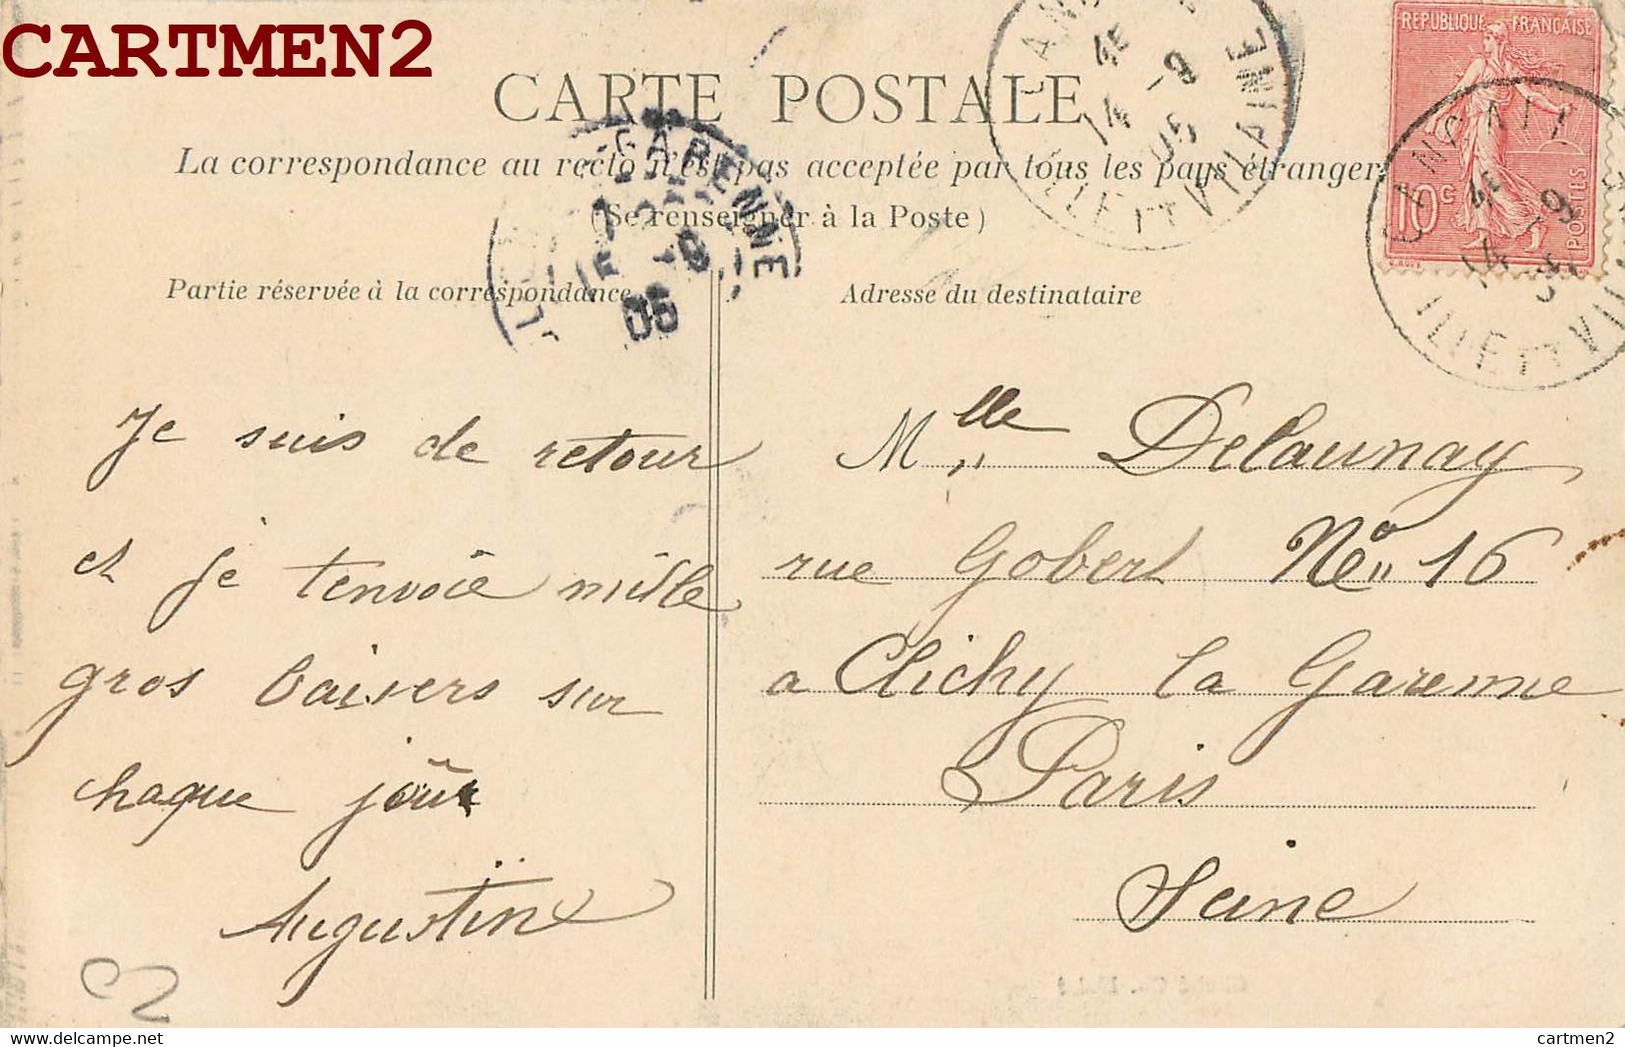 CARTMEN2
CARTE POSTALE
La correspondance au recto n'est pas acceptée par tous les pays étrangers
(Se renseigner à la Poste)
Partie réservée à la correspondance
Adresse du destinataire
RÉPUBLIQUE FRANÇAISE
10c
POSTES
CANCALE
14 -9
05
ILLE ET VILAINE
GARENNE
05
Je suis de retour
et je t'envoie mille
gros baisers sur
chaque joue
Augustine
Mlle Delaunay
rue Gobert No 16
a Clichy la Garenne
Paris
Seine
cartmen2
cartmen2